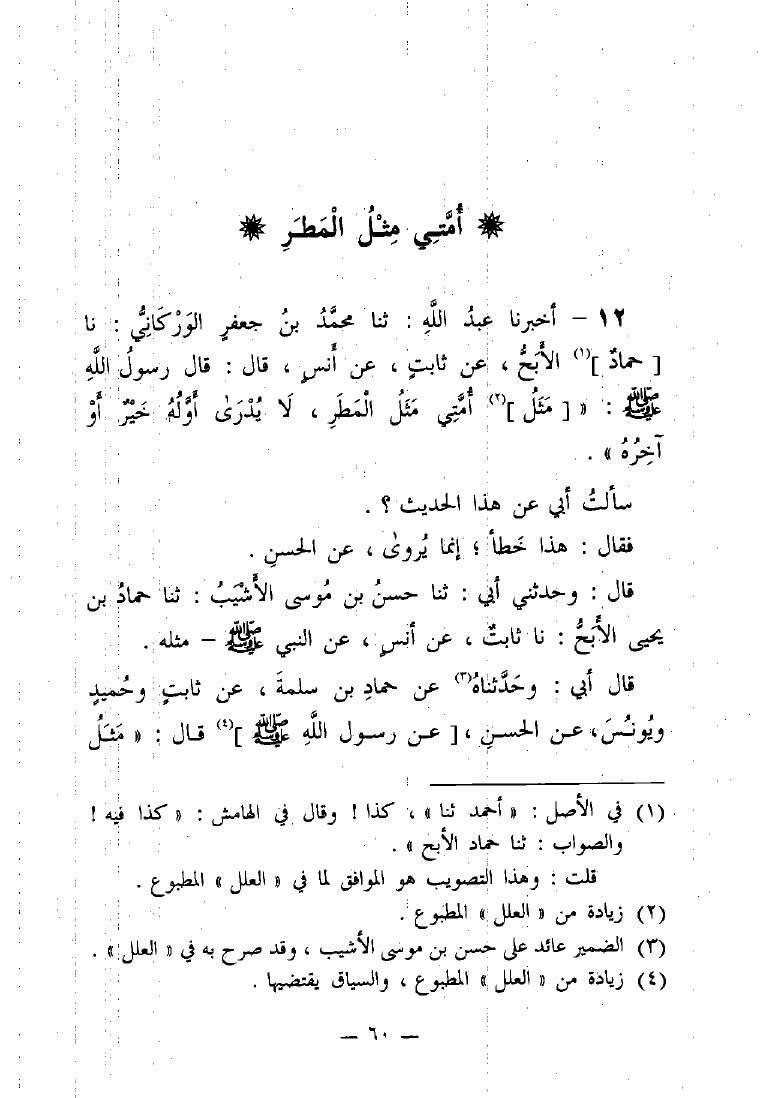 أُمَّتِي مِثْلُ الْمَطَرِ
١٢ – أخبرنا عبدُ اللَّهِ : ثنا محمَّدُ بنُ جعفرٍ الوَرْكَانِيُّ : نا
[ حمادٌ ](١) الأَبَحُّ ، عن ثابتٍ ، عن أَنسٍ ، قال : قال رسولُ اللَّهِ
ﷺ : « [ مَثَلُ ](٢) أُمَّتِي مَثَلُ الْمَطَرِ ، لَا يُدْرَىٰ أَوَّلُهُ خَيْرٌ أَوْ
آخِرُهُ » .
سألتُ أبي عن هذا الحديث ؟ .
فقال : هذا خَطأ ؛ إنما يُروىٰ ، عن الحسنِ .
قال : وحدثني أبي : ثنا حسنُ بن مُوسى الأَشْيَبُ : ثنا حمادُ بن
يحيى الأَبَحُّ : نا ثابتٌ ، عن أنسٍ ، عن النبي ﷺ – مثله .
قال أبي : وحَدَّثناهُ(٣) عن حمادِ بن سلمةَ ، عن ثابتٍ وحُميدٍ
ويُونُسَ ، عن الحسنِ ، [ عن رسول اللَّهِ ﷺ ](٤) قال : « مَثَلُ
(١) في الأصل : « أحمد ثنا » ، كذا ! وقال في الهامش : « كذا فيه !
والصواب : ثنا حماد الأبح » .
قلت : وهذا التصويب هو الموافق لما في « العلل » المطبوع .
(٢) زيادة من « العلل » المطبوع .
(٣) الضمير عائد على حسن بن موسى الأشيب ، وقد صرح به في « العلل » .
(٤) زيادة من « العلل » المطبوع ، والسياق يقتضيها .
— ٦٠ —